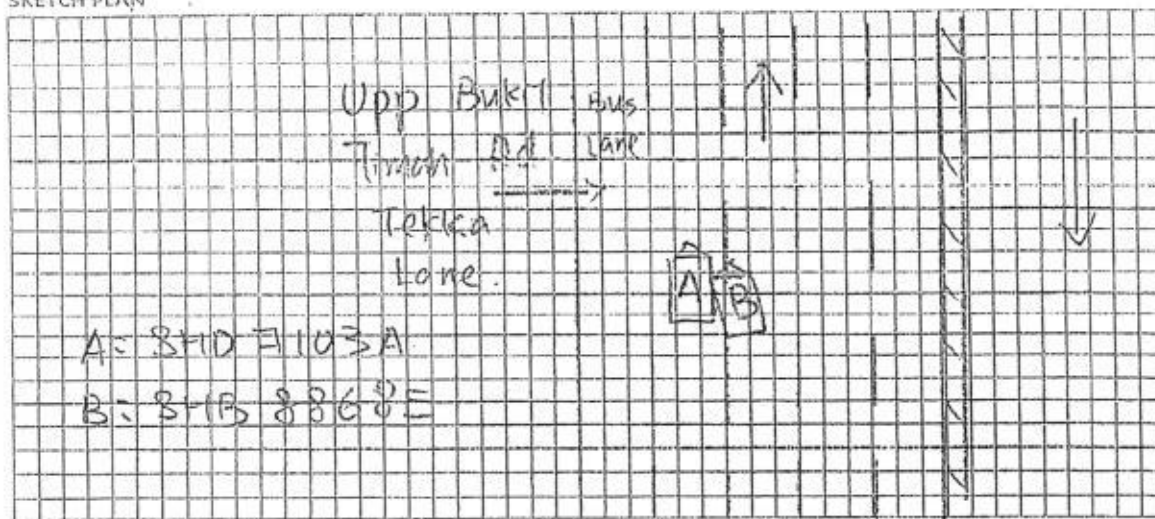 SKETCH PLAN
Upp Bukit
Timah Rd
Tekka
Lane.
Bus
Lane
A
B
A: SHD 7103A
B: SHB 8868E